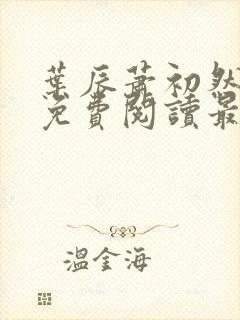 葉辰蕭初然
免費閱讀最
溫金海